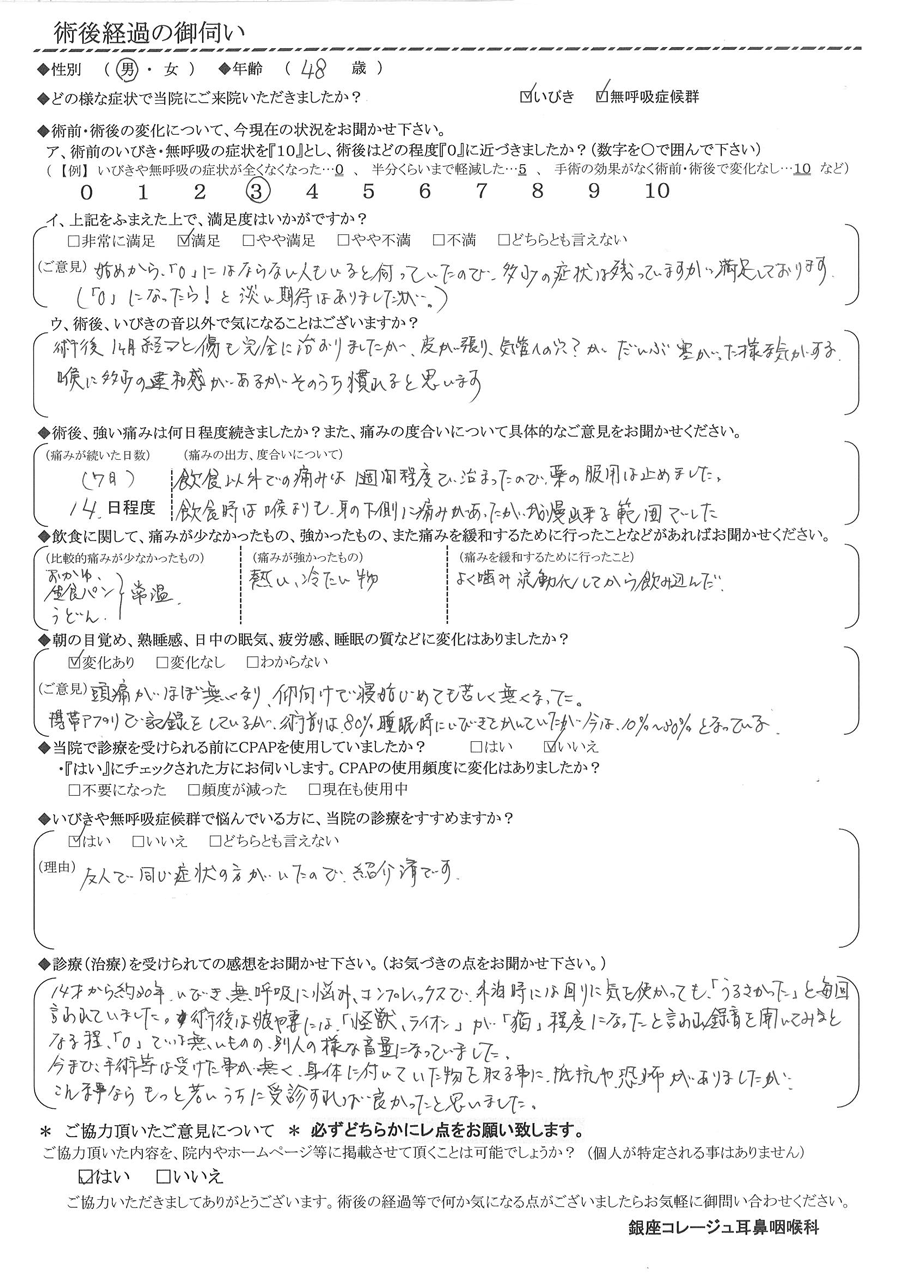 術後経過の御伺い
◆性別 （ 男 ・ 女 ） ◆年齢 （ 48 歳 ）
◆どの様な症状で当院にご来院いただきましたか？ ☑いびき ☑無呼吸症候群
◆術前・術後の変化について、今現在の状況をお聞かせ下さい。
ア、術前のいびき・無呼吸の症状を『10』とし、術後はどの程度『0』に近づきましたか？（数字を〇で囲んで下さい）
（【例】 いびきや無呼吸の症状が全くなくなった…0 、 半分くらいまで軽減した…5 、 手術の効果がなく術前・術後で変化なし…10 など）
0 1 2 3 4 5 6 7 8 9 10
イ、上記をふまえた上で、満足度はいかがですか？
□非常に満足 ☑満足 □やや満足 □やや不満 □不満 □どちらとも言えない
（ご意見）始めから、「0」にはならない人もいると伺っていたので、多少の症状は残っていますが、満足しております。
（「0」になったら！と淡い期待はありましたが。）
ウ、術後、いびきの音以外で気になることはございますか？
術後 1ヶ月経つと傷も完全に治りましたが、皮が張り、気管への穴？が、だいぶ塞がった様な気がする。
喉に多少の違和感があるがそのうち慣れると思います
◆術後、強い痛みは何日程度続きましたか？また、痛みの度合いについて具体的なご意見をお聞かせください。
（痛みが続いた日数） （痛みの出方、度合いについて）
（7日） 飲食以外での痛みは1週間程度で治まったので、薬の服用は止めました。
14 日程度 飲食時は喉よりも、耳の下側に痛みがあったが、我慢出来る範囲でした
◆飲食に関して、痛みが少なかったもの、強かったもの、また痛みを緩和するために行ったことなどがあればお聞かせください。
（比較的痛みが少なかったもの） （痛みが強かったもの） （痛みを緩和するために行ったこと）
おかゆ、 熱い、冷たい物 よく噛み流動化してから飲み込んだ。
食パン 常温
うどん
◆朝の目覚め、熟睡感、日中の眠気、疲労感、睡眠の質などに変化はありましたか？
☑変化あり □変化なし □わからない
（ご意見） 頭痛がほぼ無くなり、仰向けで寝始めても苦しく無くなった。
携帯アプリで記録をしているが、術前は80%睡眠時にいびきをかいていたが今は、10%～30%となっている
◆当院で診療を受けられる前にCPAPを使用していましたか？ □はい ☑いいえ
・『はい』にチェックされた方にお伺いします。CPAPの使用頻度に変化はありましたか？
□不要になった □頻度が減った □現在も使用中
◆いびきや無呼吸症候群で悩んでいる方に、当院の診療をすすめますか？
☑はい □いいえ □どちらとも言えない
（理由） 友人で同じ症状の方がいたので、紹介済です。
◆診療（治療）を受けられての感想をお聞かせ下さい。（お気づきの点をお聞かせ下さい。）
14才から約30年、いびき、無呼吸に悩み、コンプレックスで、外泊時には回りに気を使かっても、「うるさかった」と毎回
言われていました。術後は娘や妻には、「怪獣、ライオン」が「猫」程度になったと言われ録音を聞いてみると
なる程、「0」では無いものの、別人の様な音量になっていました。
今まで、手術等は受けた事が無く、身体に付いていた物を取る事に、抵抗や恐怖がありましたが、
こんな事ならもっと若いうちに受診すれば良かったと思いました。
＊ ご協力頂いたご意見について ＊ 必ずどちらかにレ点をお願い致します。
ご協力頂いた内容を、院内やホームページ等に掲載させて頂くことは可能でしょうか？ （個人が特定される事はありません）
☑はい □いいえ
ご協力いただきましてありがとうございます。術後の経過等で何か気になる点がございましたらお気軽に御問い合わせください。
銀座コレージュ耳鼻咽喉科